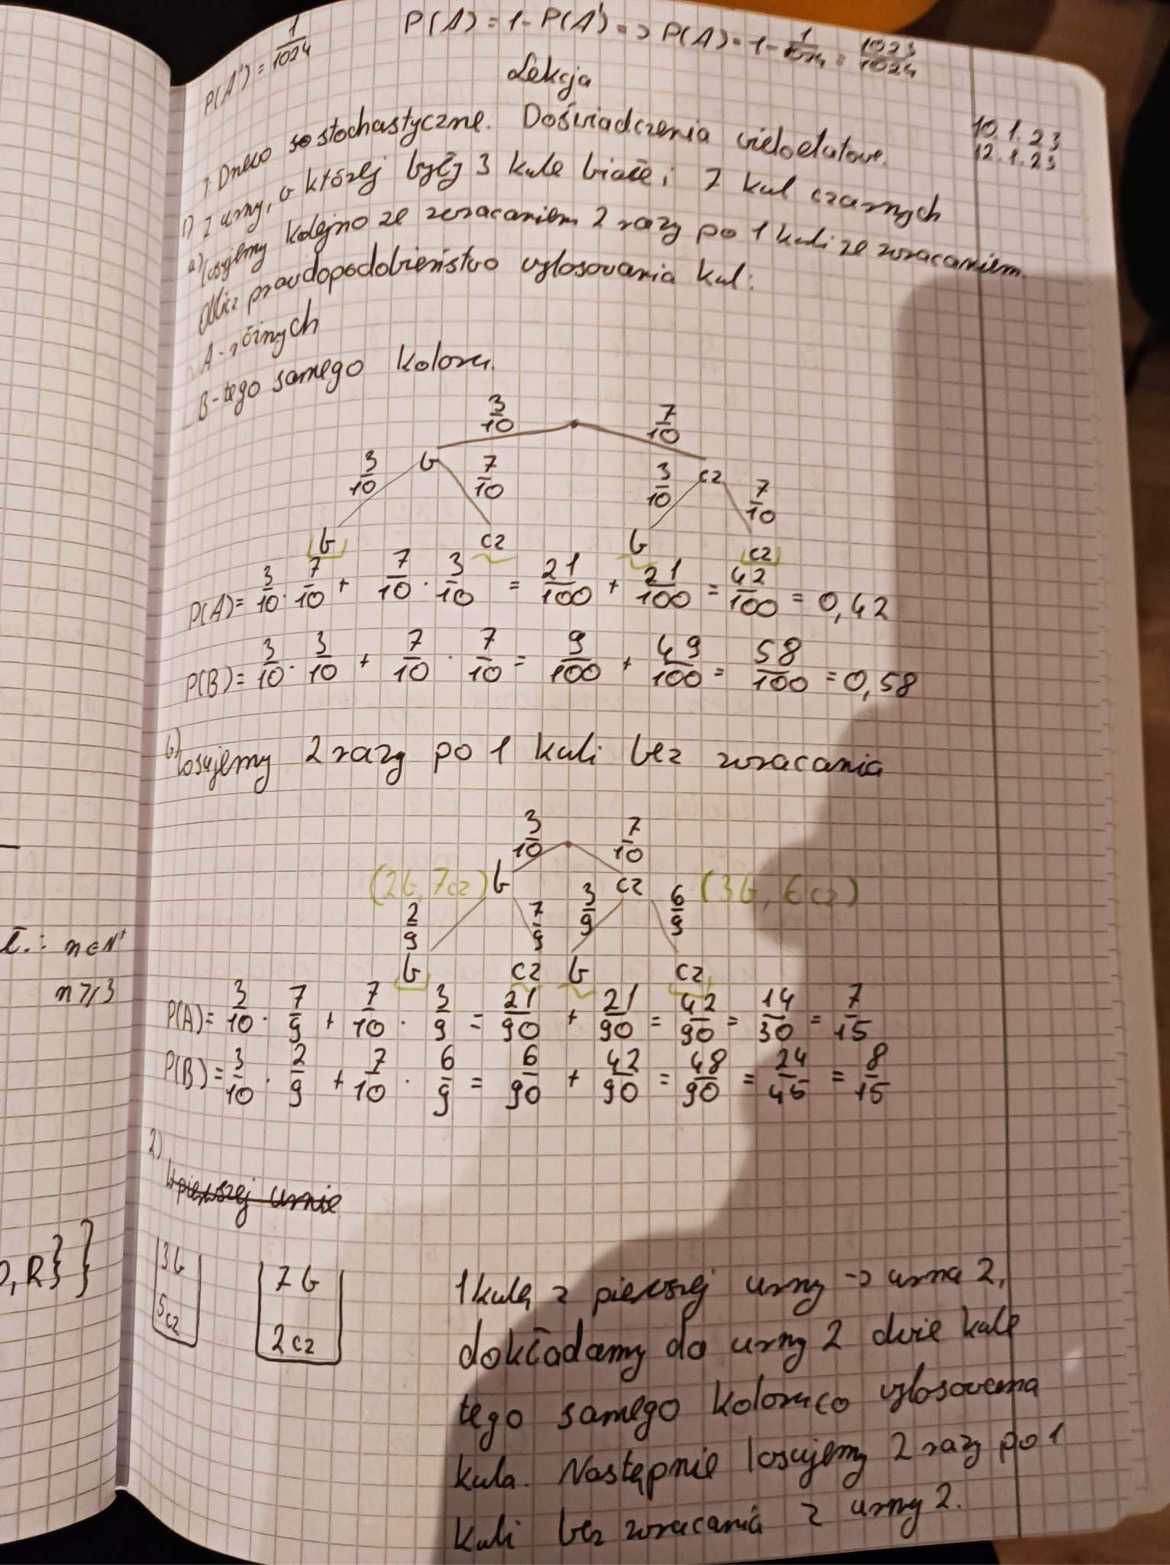 P(A') = 1/1024
P(A) = 1 - P(A') => P(A) = 1 - 1/1024 = 1023/1024
Lekcja
10.1.23
12.1.23
T: Drzewo stochastyczne. Doświadczenia wieloetatowe.
1) Z urny, w której były 3 kule białe i 7 kul czarnych
a) losujemy kolejno ze zwracaniem 2 razy po 1 kuli ze zwracaniem.
Oblicz prawdopodobieństwo wylosowania kul:
A - różnych
B - tego samego koloru.
3/10 7/10
b cz
3/10 7/10 3/10 7/10
b cz b cz
P(A) = 3/10 · 7/10 + 7/10 · 3/10 = 21/100 + 21/100 = 42/100 = 0,42
P(B) = 3/10 · 3/10 + 7/10 · 7/10 = 9/100 + 49/100 = 58/100 = 0,58
b) losujemy 2 razy po 1 kuli bez zwracania
3/10 7/10
(2b, 7cz) b cz (3b, 6cz)
2/9 7/9 3/9 6/9
b cz b cz
n∈N⁺
n⩾3
P(A) = 3/10 · 7/9 + 7/10 · 3/9 = 21/90 + 21/90 = 42/90 = 14/30 = 7/15
P(B) = 3/10 · 2/9 + 7/10 · 6/9 = 6/90 + 42/90 = 48/90 = 24/45 = 8/15
2)
W pierwszej urnie
, R}}
3b
5cz
7b
2cz
1 kulę z pierwszej urny -> urna 2,
dokładamy do urny 2 dwie kule
tego samego koloru co wylosowana
kula. Następnie losujemy 2 razy po 1
kuli bez zwracania z urny 2.